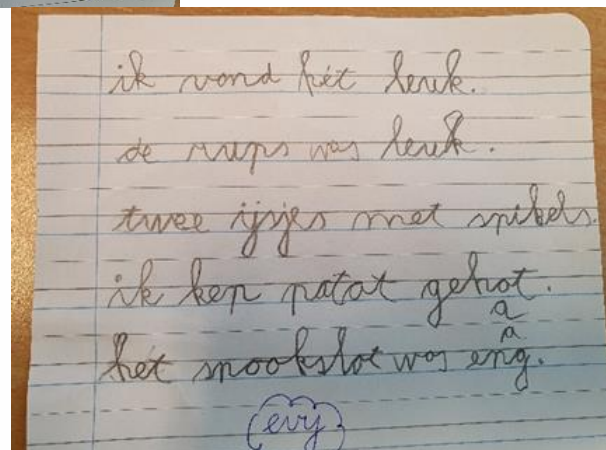 ik vond hét leuk.
de rups was leuk.
twee ijsjes met spikels.
ik hep patat gehat.
a
a
hét spookslot was eng.
evy